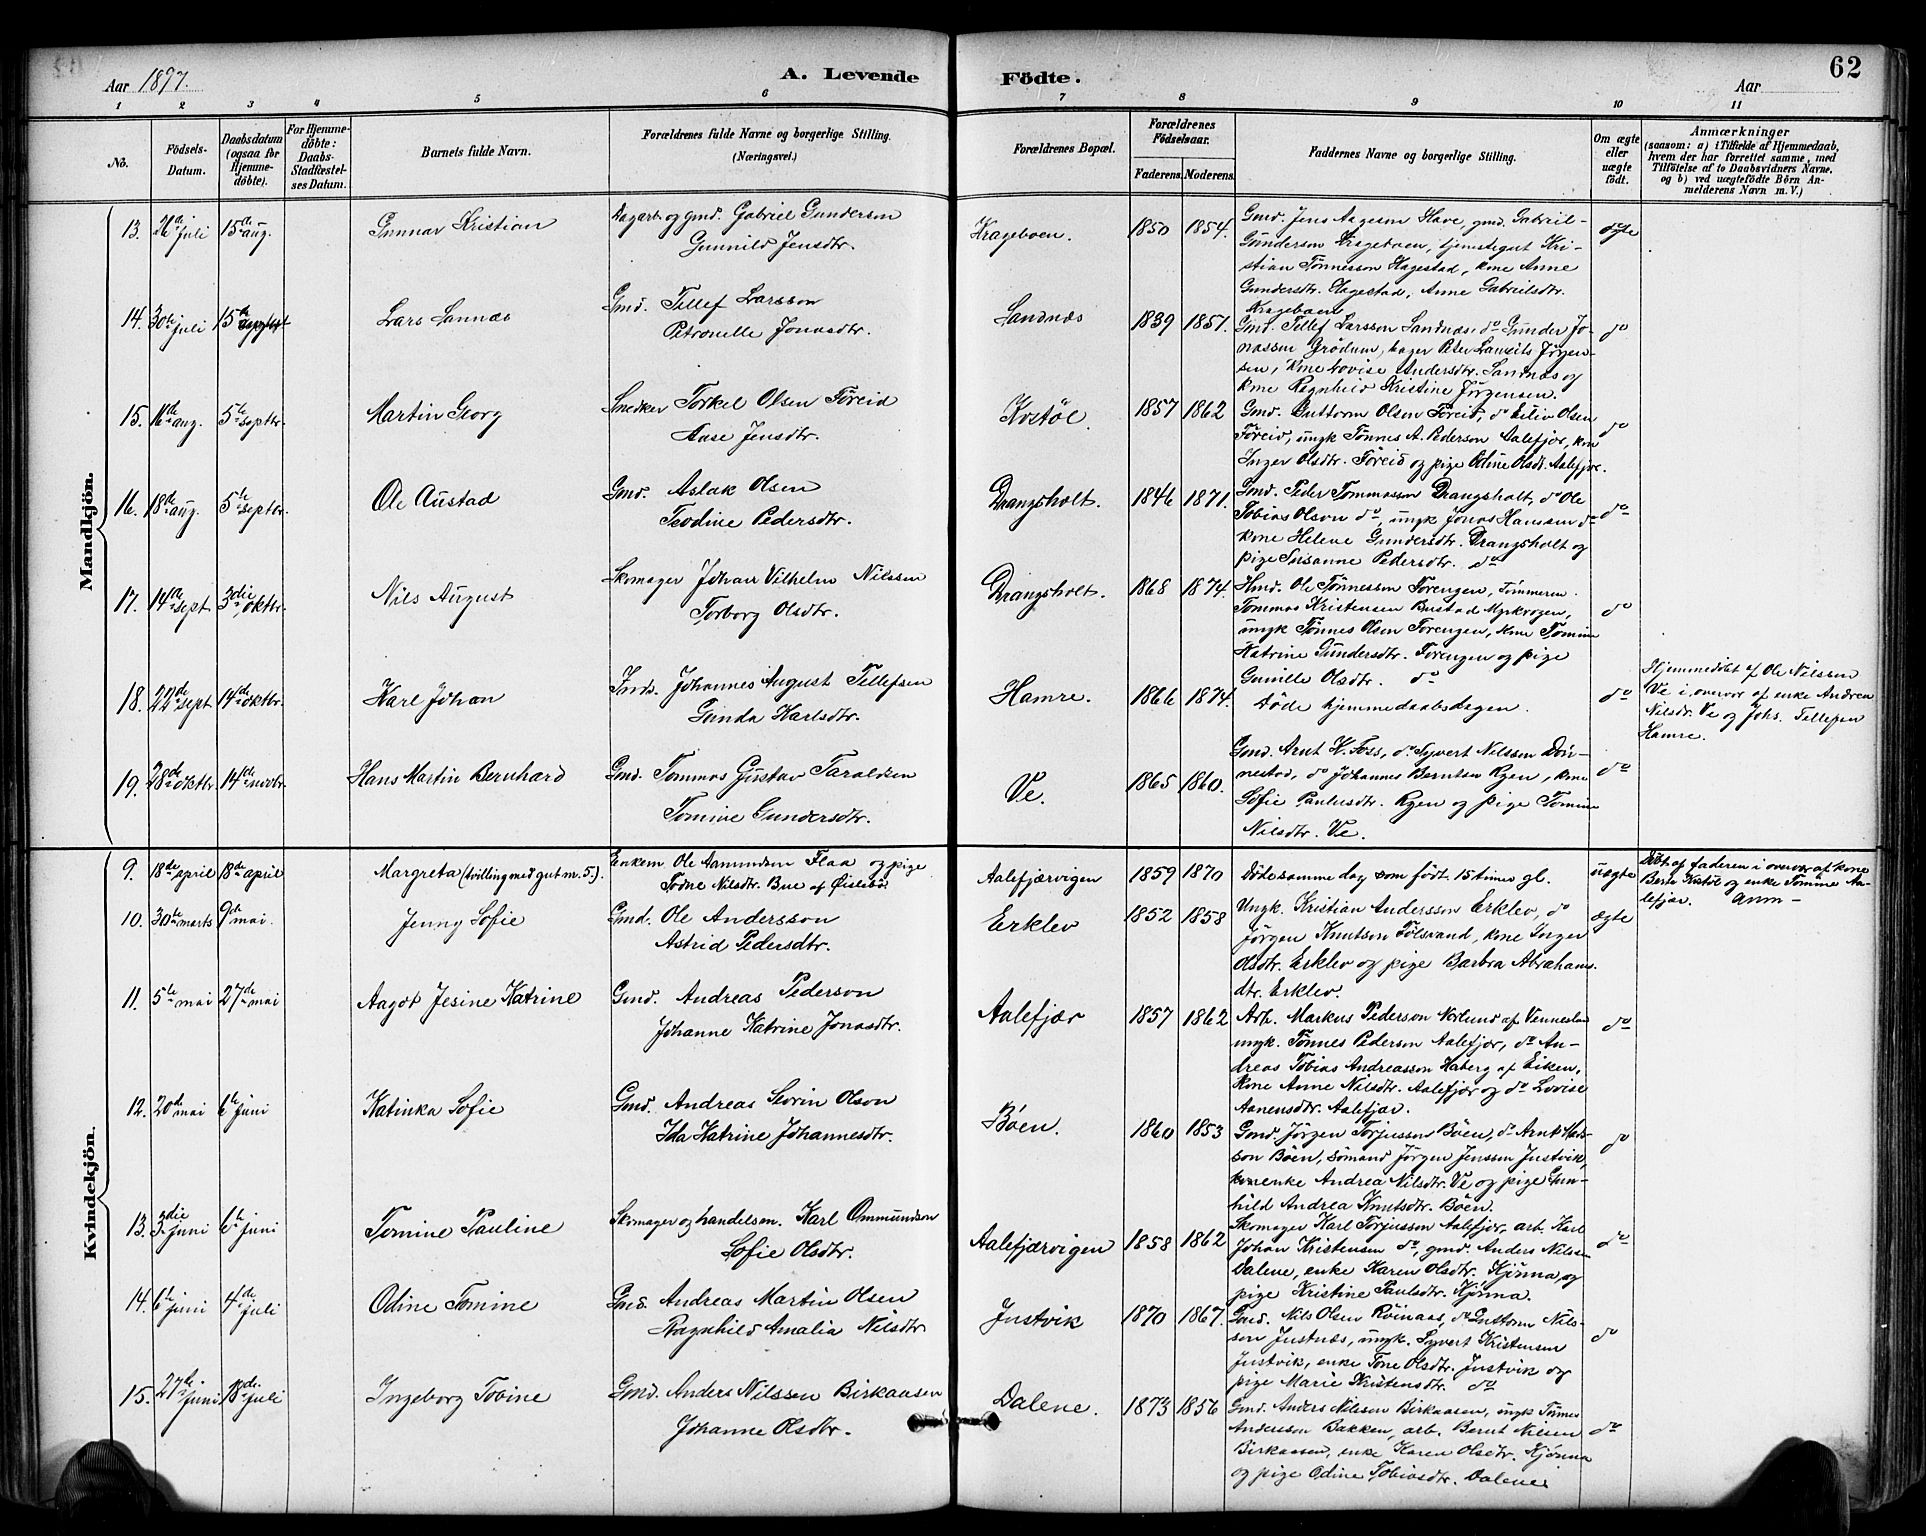 Aar 1897.
A. Levende
Födte.
Aar
62
1 2 3 4 5 6 7 8 9 10 11
No.
Fødsels-
Datum.
Daabsdatum
(ogsaa for
Hjemme-
döbte).
For Hjemme-
döbte:
Daabs-
Stadfæstel-
ses Datum.
Barnets fulde Navn.
Forældrenes fulde Navne og borgerlige Stilling.
(Næringsvei.)
Forældrenes Bopæl.
Forældrenes
Födselsaar.
Faderens. Moderens.
Faddernes Navne og borgerlige Stilling.
Om ægte
eller
uægte
födt.
Anmærkninger
(saasom: a) i Tilfælde af Hjemmedaab,
hvem der har forrettet samme, med
Tilföielse af to Daabsvidners Navne,
og b) ved uægtefödte Börn An-
melderens Navn m. V.)
Mandkjön.
13. 26de juli 15de aug. Gunnar Kristian
Dagarb og gmd. Gabriel Gunderson
Gunnild Jensdtr.
Krageboen. 1850 1854.
Gmd. Jens Aagesen Have, gmd. Gabriel
Gunderson Krageboen, tjenstegut Kri-
stian Tønnesson Hagestad, kone Anne
Gundersdtr. Hagestad, Anne Gabrielsdtr.
Krageboen
ægte
14. 30te juli 15de septbr Lars Sannæs
Gmd. Tellef Larsson
Petronelle Jonasdtr.
Sandnæs 1839 1857.
Gmd. Tellef Larsson Sandnæs, do Gunder Jo-
nassen Grødum, bager Peter Lauritz Jørgen-
sen, kone Lovise Andersdtr. Sandnæs og
kone Ragnheid Kristine Jørgensen.
do
15. 16de aug. 5te septbr. Martin Georg
Snedker Torkel Olsen Föreid
Aase Jensdtr.
Kvstöl. 1857 1862
Gmd. Guttorm Olsen Föreid, do Eiliv Olsen
Föreid, ungk Tønnes A. Pederson Aalefjær, kone
Inger Olsdtr. Föreid og pige Odine Olsdt. Aalefjær.
do
16. 18de aug. 5te septbr. Ole Austad
Gmd. Aslak Olsen
Teodine Pedersdtr.
Drangsholt. 1846 1871.
Gmd. Peder Tommasson Drangsholt, do Ole
Tobias Olson do, ungk Jonas Hanssen do
kone Helene Gundersdtr. Drangsholt og
pige Susanne Pedersdtr. do
do
17. 14de sept 3die oktbr. Nils August
Skomager Johan Vilhelm Nilssen
Torborg Olsdtr.
Drangsholt. 1868 1874.
Hmd. Ole Tønnesson Forengen, Tømmerm.
Tommas Kristensen Bustad Myrkrogen,
ungk Tønnes Olsen Forengen, kone Tomine
Katrine Gundersdtr. Forengen og pige
Gunille Olsdtr. do
do
18. 22de sept 14de oktbr. Karl Johan
Inds. Johannes August Tellefsen
Gunda Karlsdtr.
Hamre. 1866 1874.
Døde hjemmedaabsdagen.
do
Hjemmedøbt af Ole Nilssen
Ve i overvær af enke Andrea
Nilsdtr. Ve og Johs. Tellefsen
Hamre.
19. 28de oktbr. 14de novbr. Hans Martin Bernhard
Gmd. Tommas Gustav Taraldsen
Tomine Gundersdtr.
Ve. 1865 1860.
Gmd. Arnt K. Foss, do Syvert Nilssen Døn-
nestad, do Johannes Berntsen Ryen, kone
Sofie Paulusdtr. Ryen og pige Tomine
Nilsdtr. Ve.
do
Kvindekjön.
9. 18de april 18de april Margreta (tvilling med gut nr. 5.)
Enkem. Ole Aamundsen Flaa og pige
Todne Nilsdtr. Bue af Øislebø
Aalefjærvigen 1859 1870
Døde samme dag som født. 15 timer gl.
uægte
Døbt af faderen i overvær af kone
Berte Kistöl og enke Tomine Aa-
lefjær. Anm -
10. 30te marts 9de mai. Jenny Sofie
Gmd. Ole Andersson
Astrid Pedersdtr.
Erklev 1852 1858
Ungk. Kristian Andersson Erklev, do
Jørgen Knutson Følsvand, kone Inger
Olsdtr. Erklev og pige Barbra Abrahams-
dtr. Erklev.
ægte
11. 5te mai 27de mai Aagot Jesine Katrine
Gmd. Andreas Pederson
Johanne Katrine Jonasdtr.
Aalefjær 1857 1862
Arb. Markus Pederson Nerlund af Vennesla
ungk. Tønnes Pederson Aalefjær, do An-
dreas Tobias Andreasson Haberg af Eiken,
kone Anne Nilsdtr. Aalefjær og do Lovise
Aanensdtr. Aalefjær.
do
12. 20de mai 6te juni Katinka Sofie
Gmd. Andreas Severin Olson
Ida Katrine Johannesdtr.
Böen. 1860 1853
Gmd. Jørgen Torjusson Böen, do Arnt Mads-
son Böen, sømand Jørgen Jenssen Justvik,
enke Andrea Nilsdtr. Ve og pige Gun-
hild Andrea Knutsdtr. Böen.
do
13. 3die juni 6te juni Tomine Pauline
Skomager og handelsm. Karl Ommundson
Sofie Olsdtr.
Aalefjærvigen 1858 1862
Skomager Karl Torjusson Aalefjær, arb. Karl
Johan Kristensen do, gmd. Anders Nilssen
Dalene, enke Karen Olsdtr. Kjønna og
pige Kristine Paulsdtr. Kjønna.
do
14. 6te juni 4de juli Odine Tomine
Gmd. Andreas Martin Olsen
Ragnhild Amalia Nilsdtr
Justvik 1870 1867.
Gmd. Nils Olsen Röinaas, do Guttorm Nils-
son Justnæs, ungk. Syvert Kristensen
Justvik, enke Tone Olsdtr. Justvik og
pige Marie Kristensdtr. do
do
15. 27de juni 18de juli Ingeborg Tobine
Gmd. Anders Nilssen Birkaasen
Johanne Olsdtr.
Dalene. 1873 1856
Gmd. Anders Nilsson Birkaasen, ungk Tønnes
Andersson Bakken, arb. Bernt Nilsen
Birkaasen, enke Karen Olsdtr. Kjønna
og pige Odine Tobiasdtr. Dalene.
do